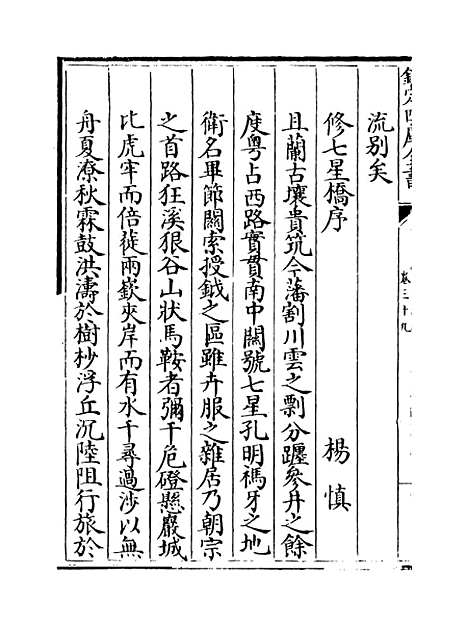 欽定四庫全書
卷三十九
流别矣
修七星橋序 楊慎
且蘭古壤貴筑今藩割川雲之剽分躔參井之餘
度粤占西路實貫南中闗號七星孔明禡牙之地
衛名畢節闗索授鉞之區雖卉服之雜居乃朝宗
之首路狂溪狠谷山狀馬鞍者彌千危磴懸巖城
比虎牢而倍蓰兩嶔夾岸而有水千尋過涉以無
舟夏潦秋霖鼓洪濤於樹杪浮丘沉陸阻行旅於